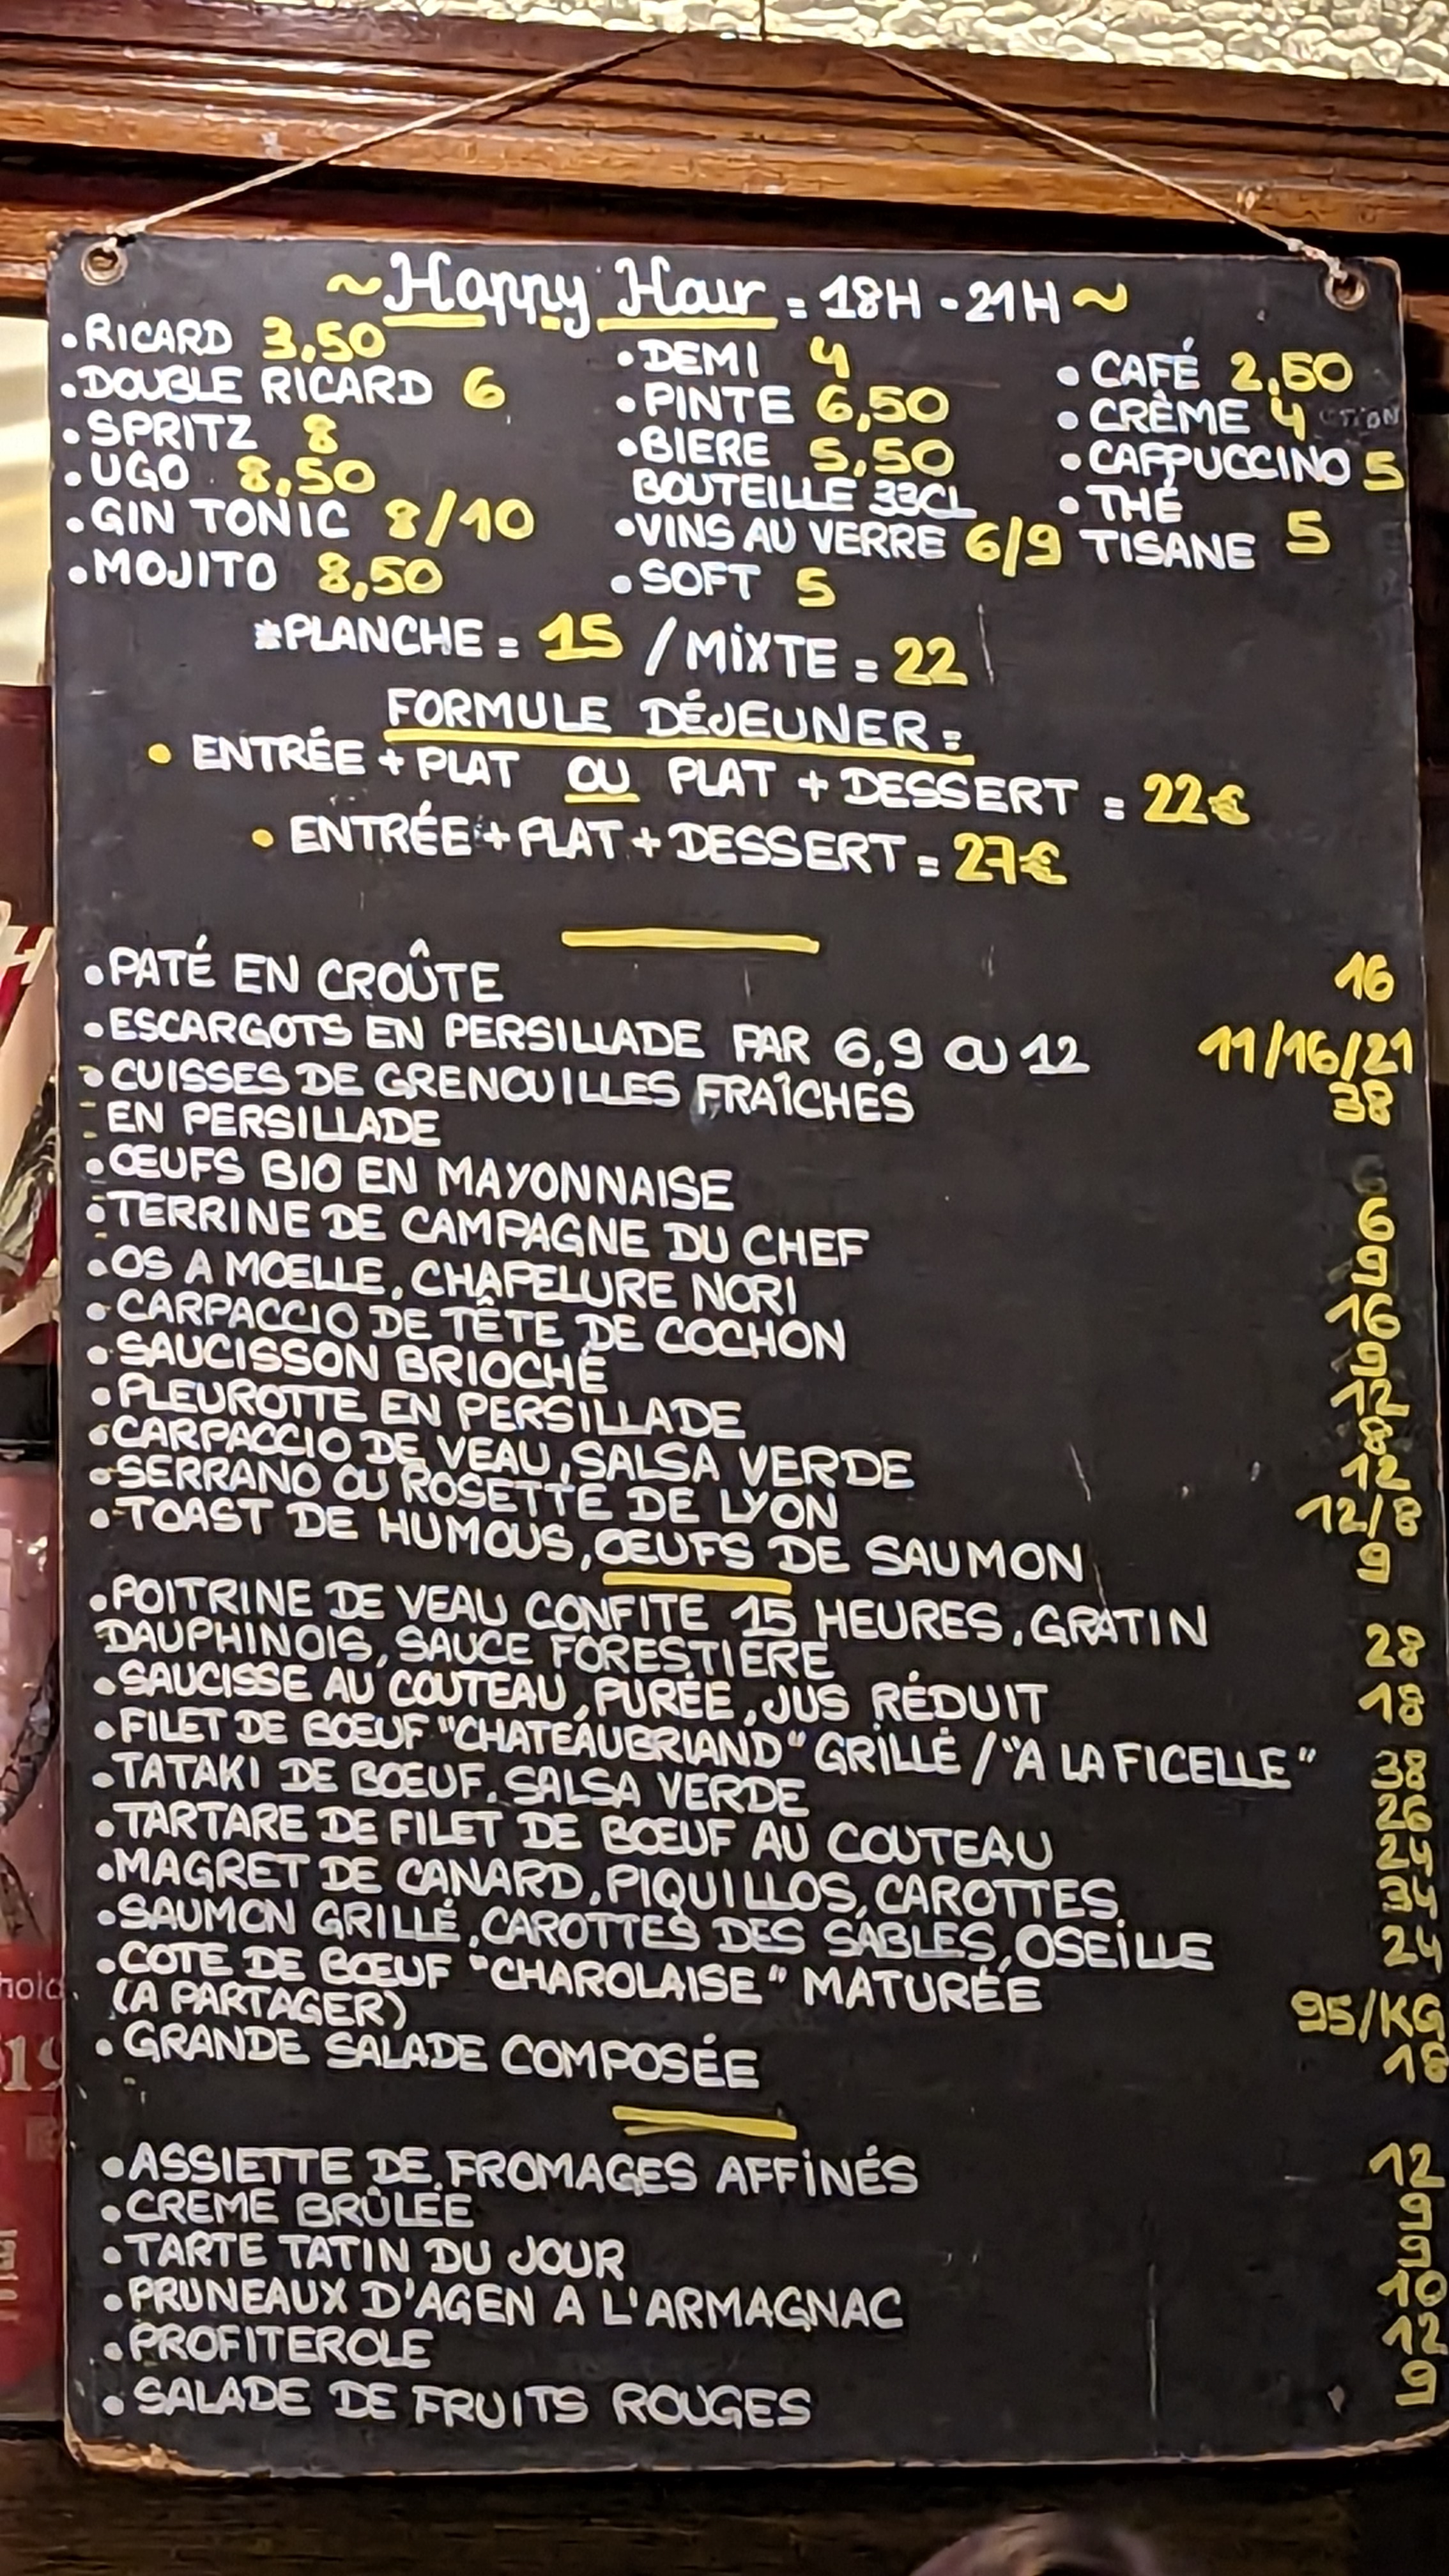 ~Happy Hour = 18H - 21H~
• RICARD 3,50
• DOUBLE RICARD 6
• SPRITZ 8
• UGO 8,50
• GIN TONIC 8/10
• MOJITO 8,50
• DEMI 4
• PINTE 6,50
• BIERE 5,50
BOUTEILLE 33CL
• VINS AU VERRE 6/9
• SOFT 5
• CAFÉ 2,50
• CRÈME 4
• CAPPUCCINO 5
• THÉ
TISANE 5
*PLANCHE = 15 / MIXTE = 22
FORMULE DÉJEUNER =
• ENTRÉE + PLAT OU PLAT + DESSERT = 22€
• ENTRÉE + PLAT + DESSERT = 27€
• PATÉ EN CROÛTE 16
• ESCARGOTS EN PERSILLADE PAR 6,9 OU 12 11/16/21
• CUISSES DE GRENOUILLES FRAÎCHES 38
EN PERSILLADE
• ŒUFS BIO EN MAYONNAISE 6
• TERRINE DE CAMPAGNE DU CHEF 9
• OS A MOELLE, CHAPELURE NORI 16
• CARPACCIO DE TÊTE DE COCHON 9
• SAUCISSON BRIOCHÉ 12
• PLEUROTTE EN PERSILLADE 8
• CARPACCIO DE VEAU, SALSA VERDE 12
• SERRANO OU ROSETTE DE LYON 12/8
• TOAST DE HUMOUS, ŒUFS DE SAUMON 9
• POITRINE DE VEAU CONFITE 15 HEURES, GRATIN
DAUPHINOIS, SAUCE FORESTIÈRE 28
• SAUCISSE AU COUTEAU, PURÉE, JUS RÉDUIT 18
• FILET DE BŒUF "CHATEAUBRIAND" GRILLÉ / "A LA FICELLE" 38
• TATAKI DE BŒUF, SALSA VERDE 26
• TARTARE DE FILET DE BŒUF AU COUTEAU 24
• MAGRET DE CANARD, PIQUILLOS, CAROTTES 34
• SAUMON GRILLÉ, CAROTTES DES SABLES, OSEILLE 24
• COTE DE BŒUF "CHAROLAISE" MATURÉE
(A PARTAGER) 95/KG
• GRANDE SALADE COMPOSÉE 18
• ASSIETTE DE FROMAGES AFFINÉS 12
• CREME BRÛLÉE 9
• TARTE TATIN DU JOUR 9
• PRUNEAUX D'AGEN A L'ARMAGNAC 10
• PROFITEROLE 12
• SALADE DE FRUITS ROUGES 9